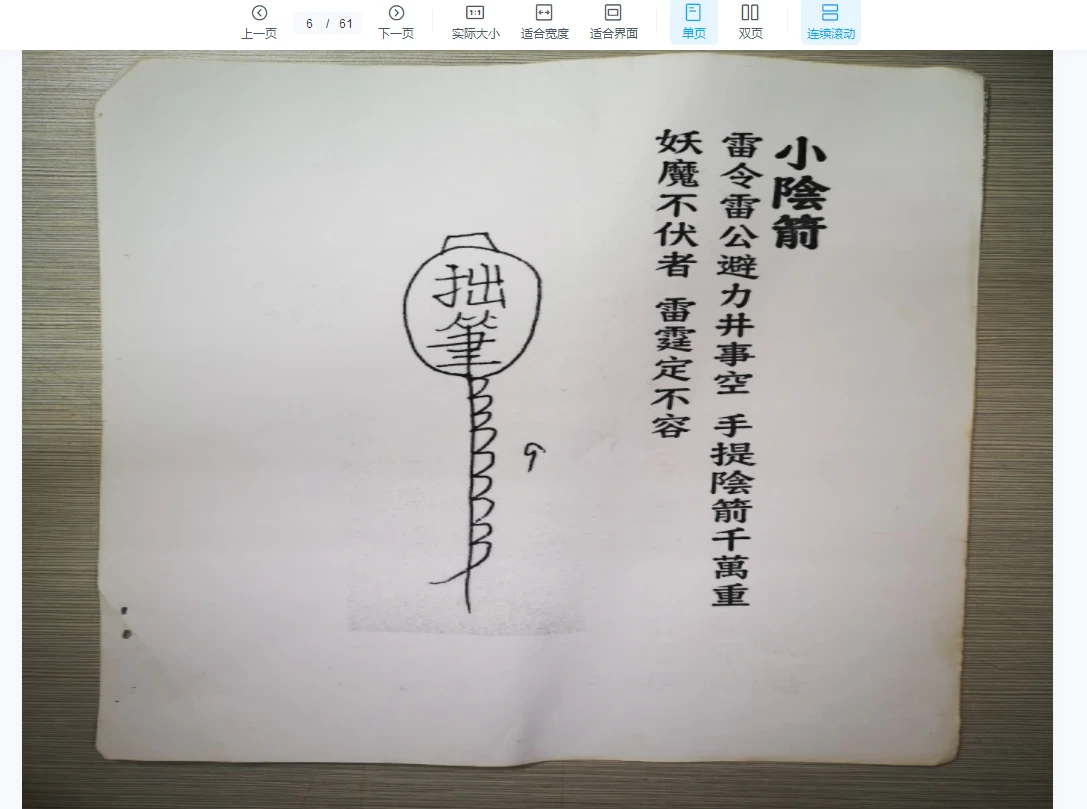 上一页
6 / 61
下一页
实际大小
适合宽度
适合界面
单页
双页
连续滚动
小陰箭
雷令雷公避力井事空 手提陰箭千萬重
妖魔不伏者 雷霆定不容
拙筆
9